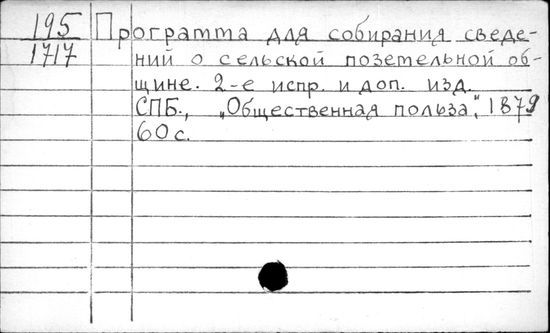 195 Программа для собирания сведе-
1717 ний о сельской поземельной об-
щине. 2-е испр. и доп. изд.
СПБ., „Общественная польза", 1879
60 с.